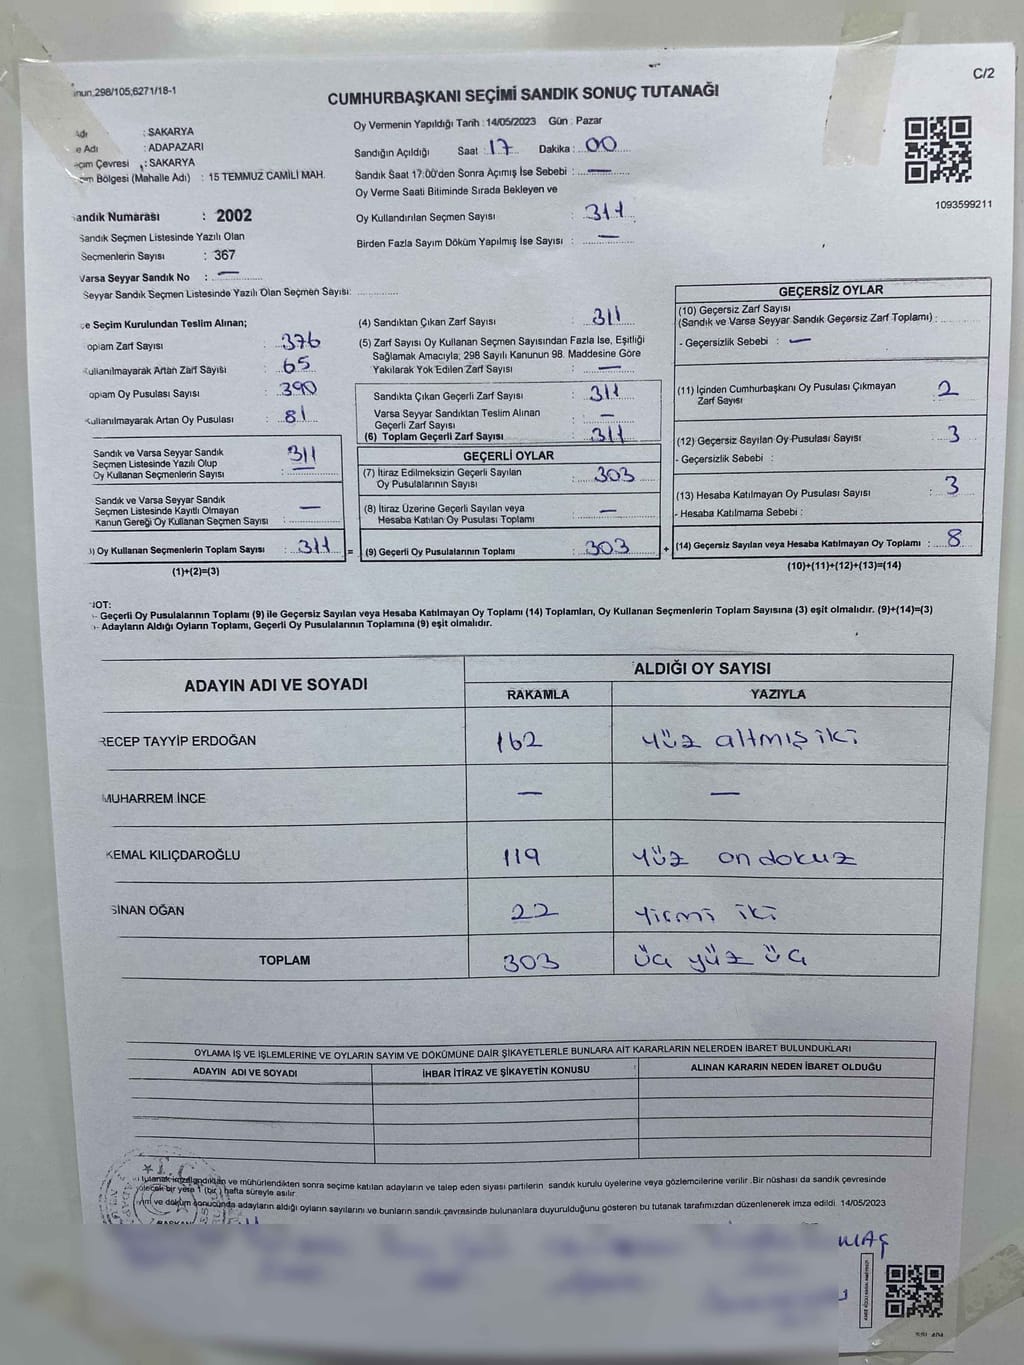 nun.298/105,6271/18-1
C/2
CUMHURBAŞKANI SEÇİMİ SANDIK SONUÇ TUTANAĞI
Adı : SAKARYA
e Adı : ADAPAZARI
çim Çevresi : SAKARYA
Bölgesi (Mahalle Adı) : 15 TEMMUZ CAMİLİ MAH.
andık Numarası : 2002
Sandık Seçmen Listesinde Yazılı Olan
Seçmenlerin Sayısı : 367
Varsa Seyyar Sandık No : —
Seyyar Sandık Seçmen Listesinde Yazılı Olan Seçmen Sayısı: ..............
Oy Vermenin Yapıldığı Tarih : 14/05/2023 Gün : Pazar
Sandığın Açıldığı Saat : 17 Dakika : 00
Sandık Saat 17:00'den Sonra Açımış İse Sebebi : —
Oy Verme Saati Bitiminde Sırada Bekleyen ve
Oy Kullandırılan Seçmen Sayısı : 311
Birden Fazla Sayım Döküm Yapılmış İse Sayısı : —
1093599211
e Seçim Kurulundan Teslim Alınan;
oplam Zarf Sayısı : 376
ullanılmayarak Artan Zarf Sayısı : 65
oplam Oy Pusulası Sayısı : 390
Kullanılmayarak Artan Oy Pusulası : 81
Sandık ve Varsa Seyyar Sandık
Seçmen Listesinde Yazılı Olup
Oy Kullanan Seçmenlerin Sayısı : 311
Sandık ve Varsa Seyyar Sandık
Seçmen Listesinde Kayıtlı Olmayan
Kanun Gereği Oy Kullanan Seçmen Sayısı : —
3) Oy Kullanan Seçmenlerin Toplam Sayısı : 311 =
(1)+(2)=(3)
(4) Sandıktan Çıkan Zarf Sayısı : 311
(5) Zarf Sayısı Oy Kullanan Seçmen Sayısından Fazla İse, Eşitliği
Sağlamak Amacıyla; 298 Sayılı Kanunun 98. Maddesine Göre
Yakılarak Yok Edilen Zarf Sayısı : —
Sandıkta Çıkan Geçerli Zarf Sayısı : 311
Varsa Seyyar Sandıktan Teslim Alınan
Geçerli Zarf Sayısı : —
(6) Toplam Geçerli Zarf Sayısı : 311
GEÇERLİ OYLAR
(7) İtiraz Edilmeksizin Geçerli Sayılan
Oy Pusulalarının Sayısı : 303
(8) İtiraz Üzerine Geçerli Sayılan veya
Hesaba Katılan Oy Pusulası Toplamı : —
(9) Geçerli Oy Pusulalarının Toplamı : 303 +
GEÇERSİZ OYLAR
(10) Geçersiz Zarf Sayısı
(Sandık ve Varsa Seyyar Sandık Geçersiz Zarf Toplamı) :
- Geçersizlik Sebebi : —
(11) İçinden Cumhurbaşkanı Oy Pusulası Çıkmayan
Zarf Sayısı : 2
(12) Geçersiz Sayılan Oy Pusulası Sayısı : 3
- Geçersizlik Sebebi :
(13) Hesaba Katılmayan Oy Pusulası Sayısı : 3
- Hesaba Katılmama Sebebi :
(14) Geçersiz Sayılan veya Hesaba Katılmayan Oy Toplamı : 8
(10)+(11)+(12)+(13)=(14)
NOT:
- Geçerli Oy Pusulalarının Toplamı (9) ile Geçersiz Sayılan veya Hesaba Katılmayan Oy Toplamı (14) Toplamları, Oy Kullanan Seçmenlerin Toplam Sayısına (3) eşit olmalıdır. (9)+(14)=(3)
- Adayların Aldığı Oyların Toplamı, Geçerli Oy Pusulalarının Toplamına (9) eşit olmalıdır.
ADAYIN ADI VE SOYADI
ALDIĞI OY SAYISI
RAKAMLA YAZIYLA
RECEP TAYYİP ERDOĞAN 162 yüz altmış iki
MUHARREM İNCE — —
KEMAL KILIÇDAROĞLU 119 yüz on dokuz
SİNAN OĞAN 22 yirmi iki
TOPLAM 303 üç yüz üç
OYLAMA İŞ VE İŞLEMLERİNE VE OYLARIN SAYIM VE DÖKÜMÜNE DAİR ŞİKAYETLERLE BUNLARA AİT KARARLARIN NELERDEN İBARET BULUNDUKLARI
ADAYIN ADI VE SOYADI İHBAR İTİRAZ VE ŞİKAYETİN KONUSU ALINAN KARARIN NEDEN İBARET OLDUĞU
tutanak imzalandıktan ve mühürlendikten sonra seçime katılan adayların ve talep eden siyasi partilerin sandık kurulu üyelerine veya gözlemcilerine verilir. Bir nüshası da sandık çevresinde
bir yere 1 (bir) hafta süreyle asılır
ve döküm sonucunda adayların aldığı oyların sayılarını ve bunların sandık çevresinde bulunanlara duyurulduğunu gösteren bu tutanak tarafımızdan düzenlenerek imza edildi. 14/05/2023
T.C.
BAŞKAN